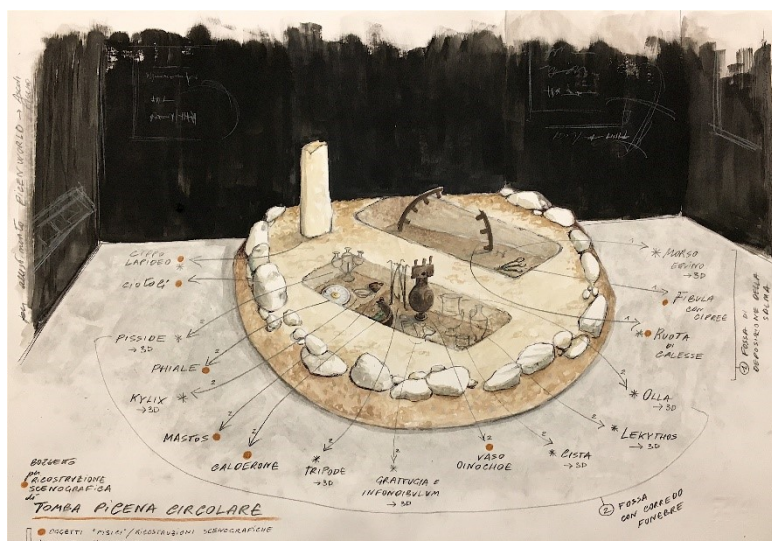 per allestimento PICEN WORLD →
CIPPO
LAPIDEO
CIOTOLE
PISSIDE
→ 3D
PHIALE
KYLIX
→ 3D
MASTOS
CALDERONE
TRIPODE
→ 3D
GRATTUGIA E
INFONDIBULUM
→ 3D
VASO
OINOCHOE
CISTA
→ 3D
LEKYTHOS
→ 3D
OLLA
→ 3D
RUOTA
DI
CALESSE
FIBULA
CON
CIPREE
MORSO
EQUINO
→ 3D
① FOSSA DI
DEPOSIZIONE DELLA
SALMA
② FOSSA
CON CORREDO
FUNEBRE
BOZZETTO
per
RICOSTRUZIONE
SCENOGRAFICA
di
TOMBA PICENA CIRCOLARE
OGGETTI "FISICI"/RICOSTRUZIONI SCENOGRAFICHE